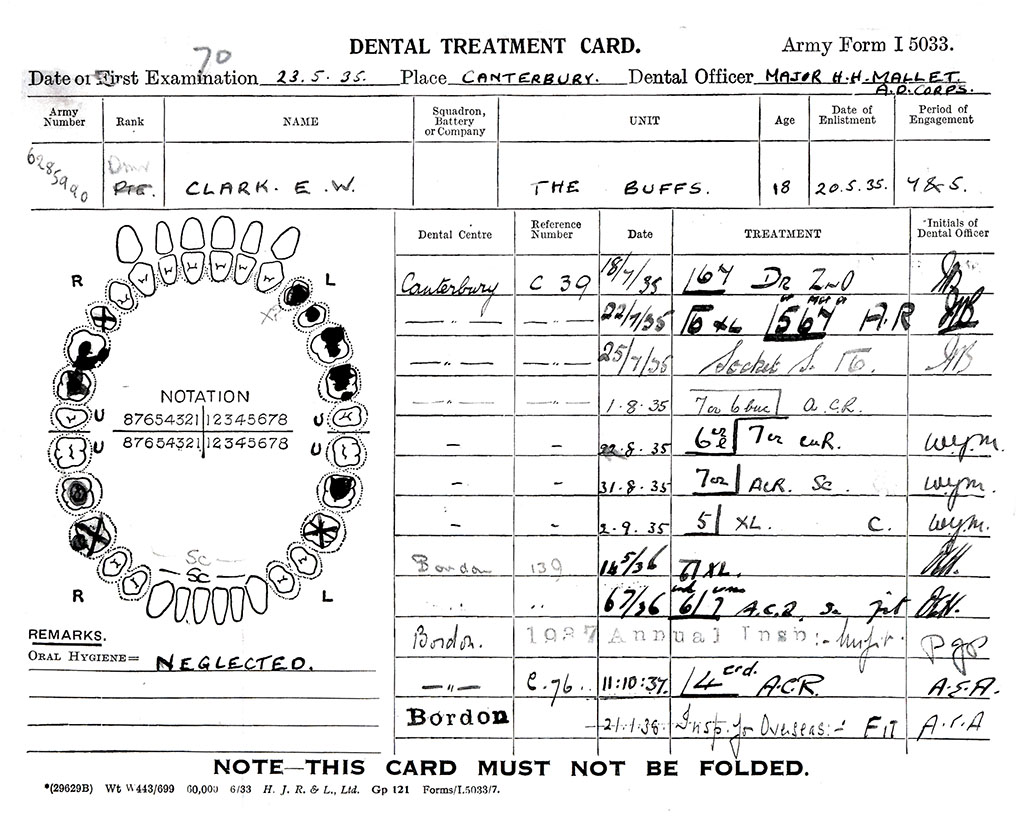 70
DENTAL TREATMENT CARD. Army Form I 5033.
Date of First Examination 23.5.35. Place CANTERBURY. Dental Officer MAJOR H.H. MALLET.
A.D. CORPS.
Army Number Rank NAME Squadron, Battery or Company UNIT Age Date of Enlistment Period of Engagement
6285990 Dmr Pte. CLARK. E. W. THE BUFFS. 18 20.5.35. 7 & 5.
Dental Centre Reference Number Date TREATMENT Initials of Dental Officer
Canterbury C 39 18/7/35 67 Dr ZnO
—〃— —〃— 22/7/35 6 XL 567 A.R
—〃— —〃— 25/7/35 Socket S. 6.
—〃— —〃— 1.8.35 7 or 6 buc A.C.R.
– – 22.8.35 6 7 or cuR. W.y.m.
– – 31.8.35 7 or ACR. Sc. W.y.m.
– – 2.9.35 5 XL. C. W.y.m.
Bordon 139 14/5/36 XL.
〃 〃 6/7/36 6 7 A.C.R. Sc
Bordon. 1937 Annual Insp:-
—〃— C.76.. 11:10:37. 4 A.C.R. A.S.A.
Bordon 21.1.38. Insp. for Overseas:- FIT
R L
X
NOTATION
87654321 12345678
U U
87654321 12345678
U U
Sc
Sc
R L
REMARKS.
ORAL HYGIENE= NEGLECTED.
NOTE—THIS CARD MUST NOT BE FOLDED.
*(29629B) Wt W443/699 60,000 6/33 H. J. R. & L., Ltd. Gp 121 Forms/I.5033/7.